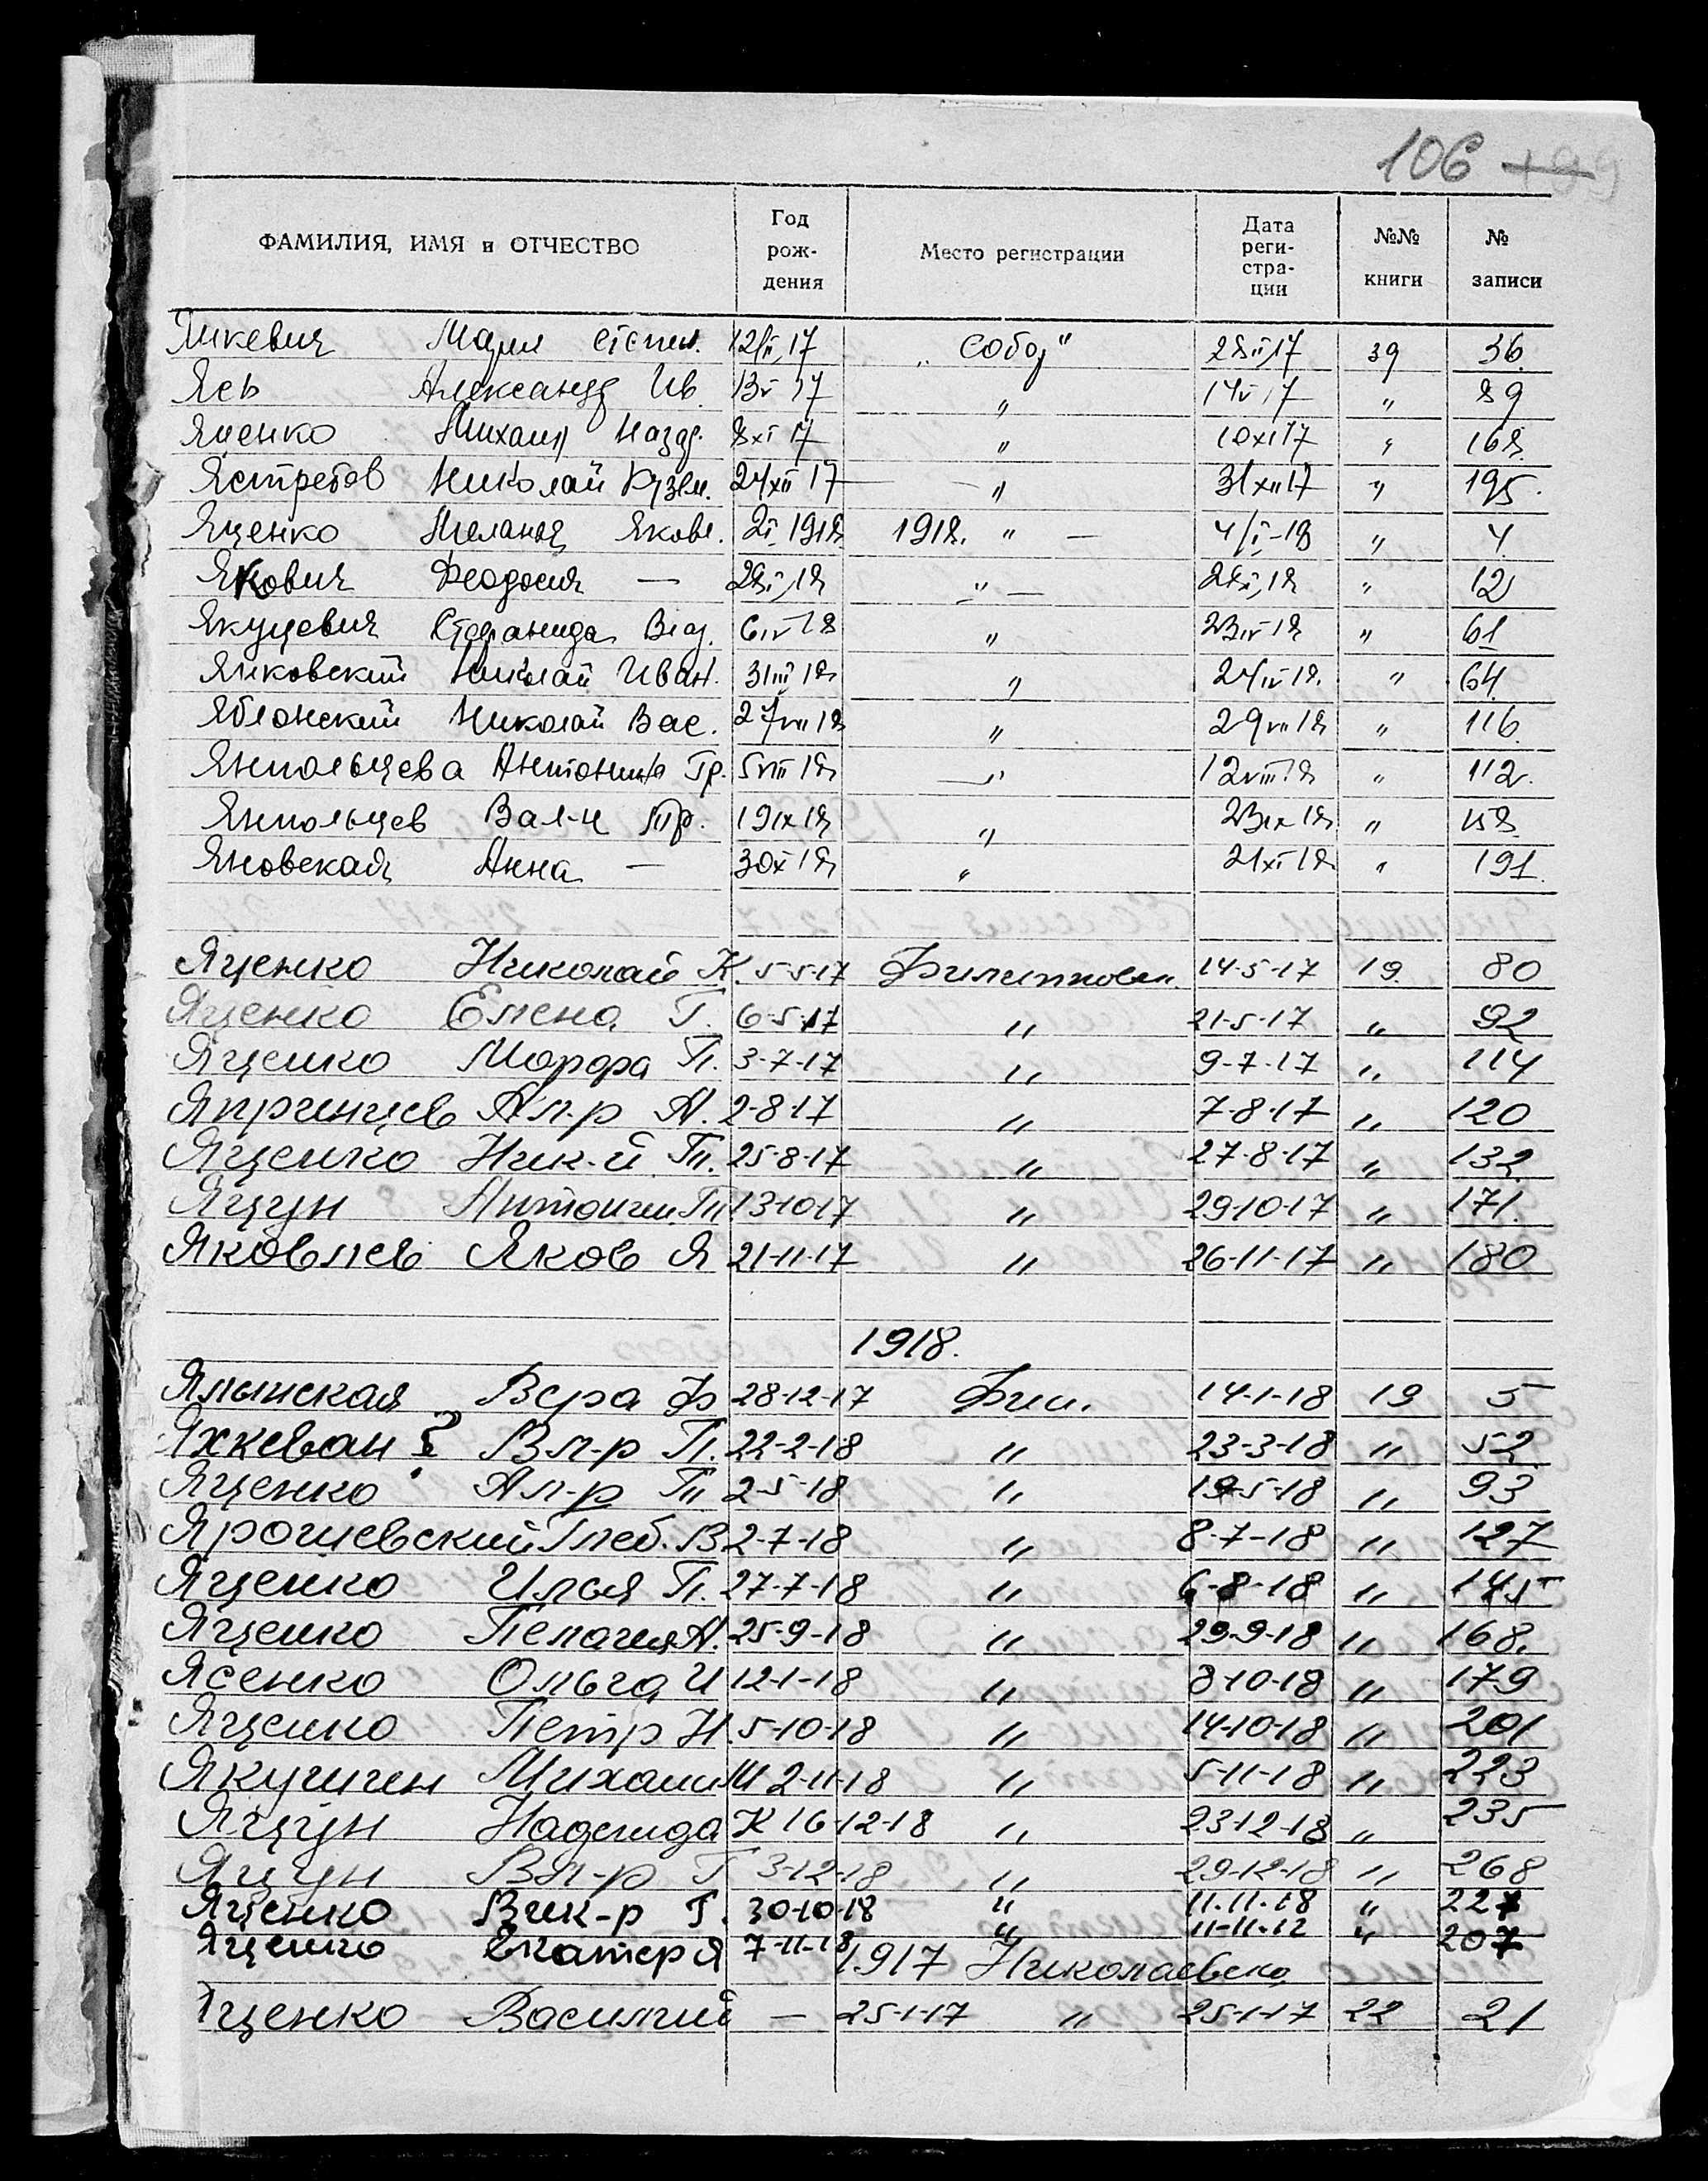 106 199
ФАМИЛИЯ, ИМЯ и ОТЧЕСТВО Год рождения Место регистрации Дата регистрации №№ книги № записи
Янкевич Мария Степ. 12/II 17 „Собор" 28 II 17 39 36
Ясь Александр Ив. 13 V 17 " 14 V 17 " 89
Яценко Михаил Назар. 8 XI 17 " 10 XI 17 " 168
Ястребов Николай Кузьм. 24 XII 17 — " 31 XII 17 " 195.
Яценко Меланья Яковл. 2 I 1918 1918. " — 4/I-18 " 4
Якович Феодосия — 28 I 18 " — 28 I 18 " 12
Якуцевич Стефанида Влад. 6 IV 18 " 23 IV 18 " 61
Янковский Николай Иван. 31 III 18 " 24 IV 18. " 64
Яблонский Николай Вас. 27 VII 18 " 29 VII 18 " 116
Янпольцева Антонина Гр. 5 VIII 18 " 12 VIII 18 " 112.
Янпольцев Вал-н Пр. 19 IX 18 " 23 IX 18 " 158
Яновская Анна — 30 X 18 " 21 XI 18 " 191.
Яценко Николай К. 5-5-17 Филипповск. 14-5-17 19. 80
Яценко Елена Г. 6-5-17 " 21-5-17 " 92
Яценко Марфа П. 3-7-17 " 9-7-17 " 114
Япринцев Ал-р А. 2-8-17 " 7-8-17 " 120
Яценко Ник-й П. 25-8-17 " 27-8-17 " 132
Яцун Антонин П 13-10-17 " 29-10-17 " 171.
Яковлев Яков Я 21-11-17 " 26-11-17 " 180
1918.
Ялынская Вера Ф 28-12-17 Фил. 14-1-18 19 5
Яхкеван ? Вл-р П. 22-2-18 " 23-3-18 " 52
Яценко Ал-р П 2-5-18 " 19-5-18 " 93
Ярошевский Глеб. В 2-7-18 " 8-7-18 " 127
Яценко Илья П. 27-7-18 " 6-8-18 " 145
Яценко Пелагия А. 25-9-18 " 29-9-18 " 168.
Ясенко Ольга И 12-1-18 " 8-10-18 " 179
Яценко Петр Н. 5-10-18 " 14-10-18 " 201
Якушин Михаил М 2-11-18 " 5-11-18 " 223
Яцун Надежда К 16-12-18 " 23-12-18 " 235
Яцун Вл-р Г 3-12-18 " 29-12-18 " 268
Яценко Вик-р Г. 30-10-18 " 11.11.18 " 227
Яценко Екатер Я 7-11-18 " 11-11-12 " 207
1917 Николаевско
Яценко Василий — 25-1-17 " 25-1-17 22 21